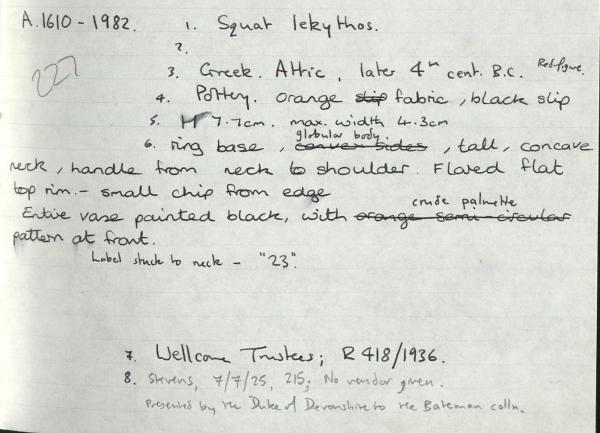 A.1610 - 1982. 1. Squat lekythos.
2.
227
3. Greek. Attic, later 4th cent. B.C. Red-figure.
4. Pottery. orange slip fabric, black slip
5. H 7.7cm. max. width 4.3cm
globular body.
6. ring base, convex sides, tall, concave
neck, handle from neck to shoulder. Flared flat
top rim. - small chip from edge
crude palmette
Entire vase painted black, with orange semi-circular
pattern at front.
Label stuck to neck - "23".
7. Wellcome Trustees; R 418/1936.
8. Stevens, 7/7/25, 215; No vendor given.
Presented by the Duke of Devonshire to the Bateman colln.